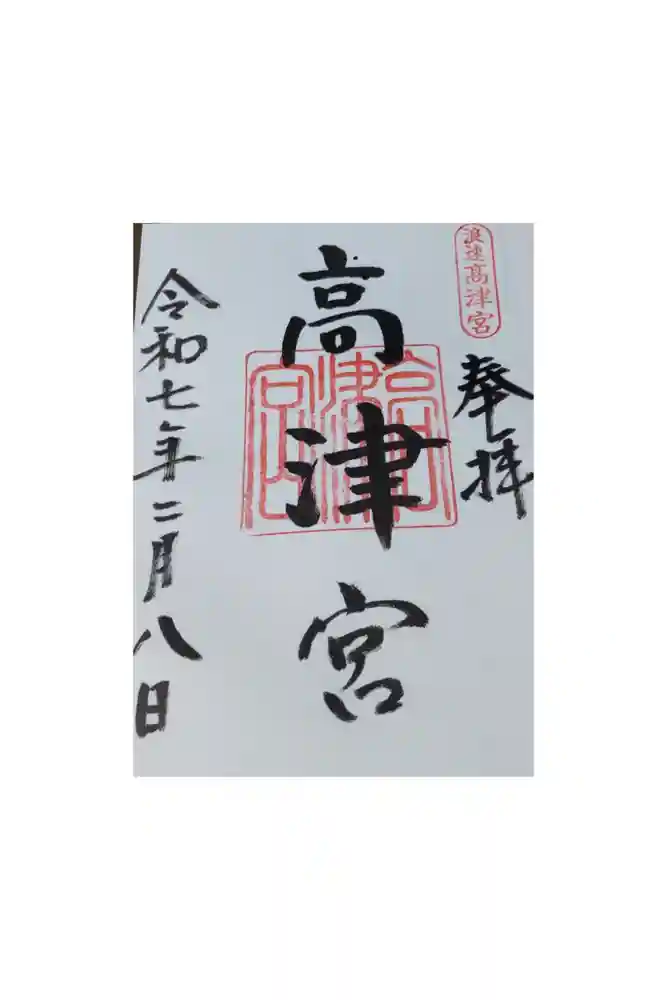 浪速高津宮
奉拝
高津宮
高津宮
令和七年二月八日